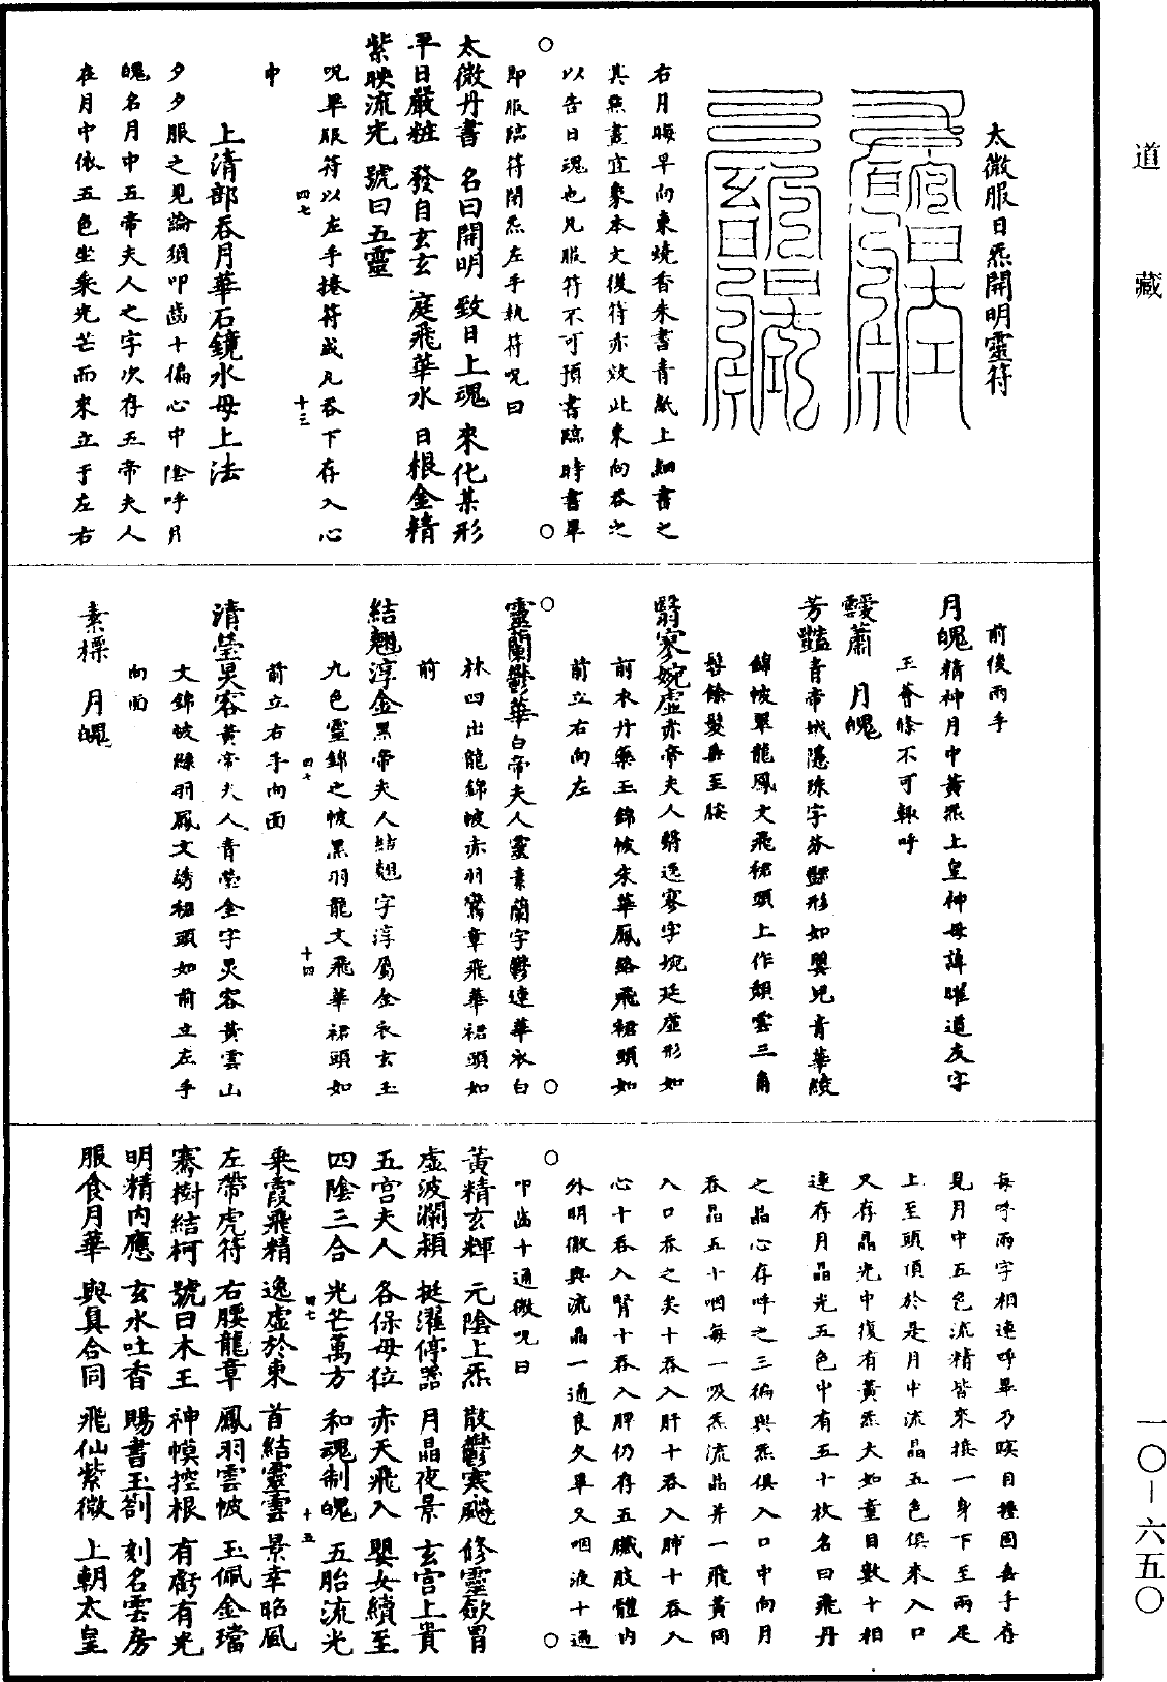 道藏
太微服日炁開明靈符
右月晦早向東燒香朱書青紙上細書之
其點畫宜象本文後符亦效此東向吞之
以告日魂也凡服符不可預書臨時書畢
即服臨符閉炁左手執符呪曰
太微丹書 名曰開明 致日上魂 來化某形
平日嚴粧 發自玄玄 庭飛華水 日根金精
紫映流光 號曰五靈
呪畢服符以左手捲符成丸吞下存入心
四七 十三
中
上清部吞月華石鏡水母上法
夕夕服之見論須叩齒十徧心中陰呼月
魄名月中五帝夫人之字次存五帝夫人
在月中依五色坐乘光芒而來立于左右
前後兩手
月魄精神月中黃炁上皇神母諱曜道支字
玉薈條不可輙呼
靉蕭 月魄
芳豔青帝娥隱珠字芬豔形如嬰兒青華綾
錦帔翠龍鳳文飛裙頭上作頹雲三角
髻餘髮垂至腰
翳寥婉虛赤帝夫人翳逸寥字婉廷虛形如
前衣丹蘂玉錦帔朱華鳳絡飛裙頭如
前立右向左
靈蘭鬱華白帝夫人靈素蘭字鬱連華衣白
林四出龍錦帔赤羽鸞章飛華裙頭如
前
結翹淳金黑帝夫人結翹字淳屬金衣玄玉
九色靈錦之帔黑羽龍文飛華裙頭如
四七 十四
前立右手向面
清瑩炅容黃帝夫人青瑩金字炅容黃雲山
文錦帔綠羽鳳文繡裙頭如前立左手
向面
素標 月魄
每呼兩字相連呼畢乃瞑目握固喜手存
見月中五色流精皆來接一身下至兩足
上至頭頂於是月中流晶五色俱來入口
又存晶光中復有黃炁大如童目數十相
連存月晶光五色中有五十枚名曰飛丹
之晶心存呼之三徧與炁俱入口中向月
吞晶五十咽每一吸炁流晶并一飛黃同
入口吞之矣十吞入肝十吞入肺十吞入
心十吞入腎十吞入脾仍存五臟肢體內
外明徹與流晶一通良久畢又咽液十過
叩齒十通微呪曰
黃精玄輝 元陰上炁 散鬱寒飈 修靈歛胃
虛波瀾穎 挺濯停器 月晶夜景 玄宮上貴
五宮夫人 各保母位 赤天飛入 嬰女續至
四陰三合 光芒萬方 和魂制魄 五胎流光
四七 十五
乘霞飛精 逸虛於東 首結靈雲 景幸昭風
左帶虎符 右腰龍章 鳳羽雲帔 玉佩金璫
騫樹結柯 號曰木王 神幙控根 有虧有光
明精內應 玄水吐香 賜書玉劄 刻名雲房
服食月華 與真合同 飛仙紫微 上朝太皇
一〇—六五〇